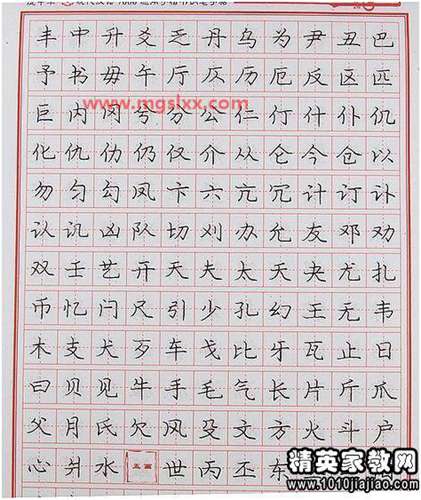 丰中升爻乏丹乌为尹丑巴
予书毋午厅仄历厄反区匹
www.mgslxx.com
巨内冈兮分公仁仃什仆仉
化仇仂仍仅介从仑今仓以
勿匀勾凤卞六亢冗计订讣
认讥凶队切刈办允友邓劝
双壬艺开天夫太夭央尤扎
币忆闩尺引少孔幻王无韦
木支犬歹车戈比牙瓦止日
曰贝见牛手毛气长片斤爪
父月氏欠风殳文方火斗户
心爿水五画世丙丕东
精英家教网
www.1010jiajiao.com